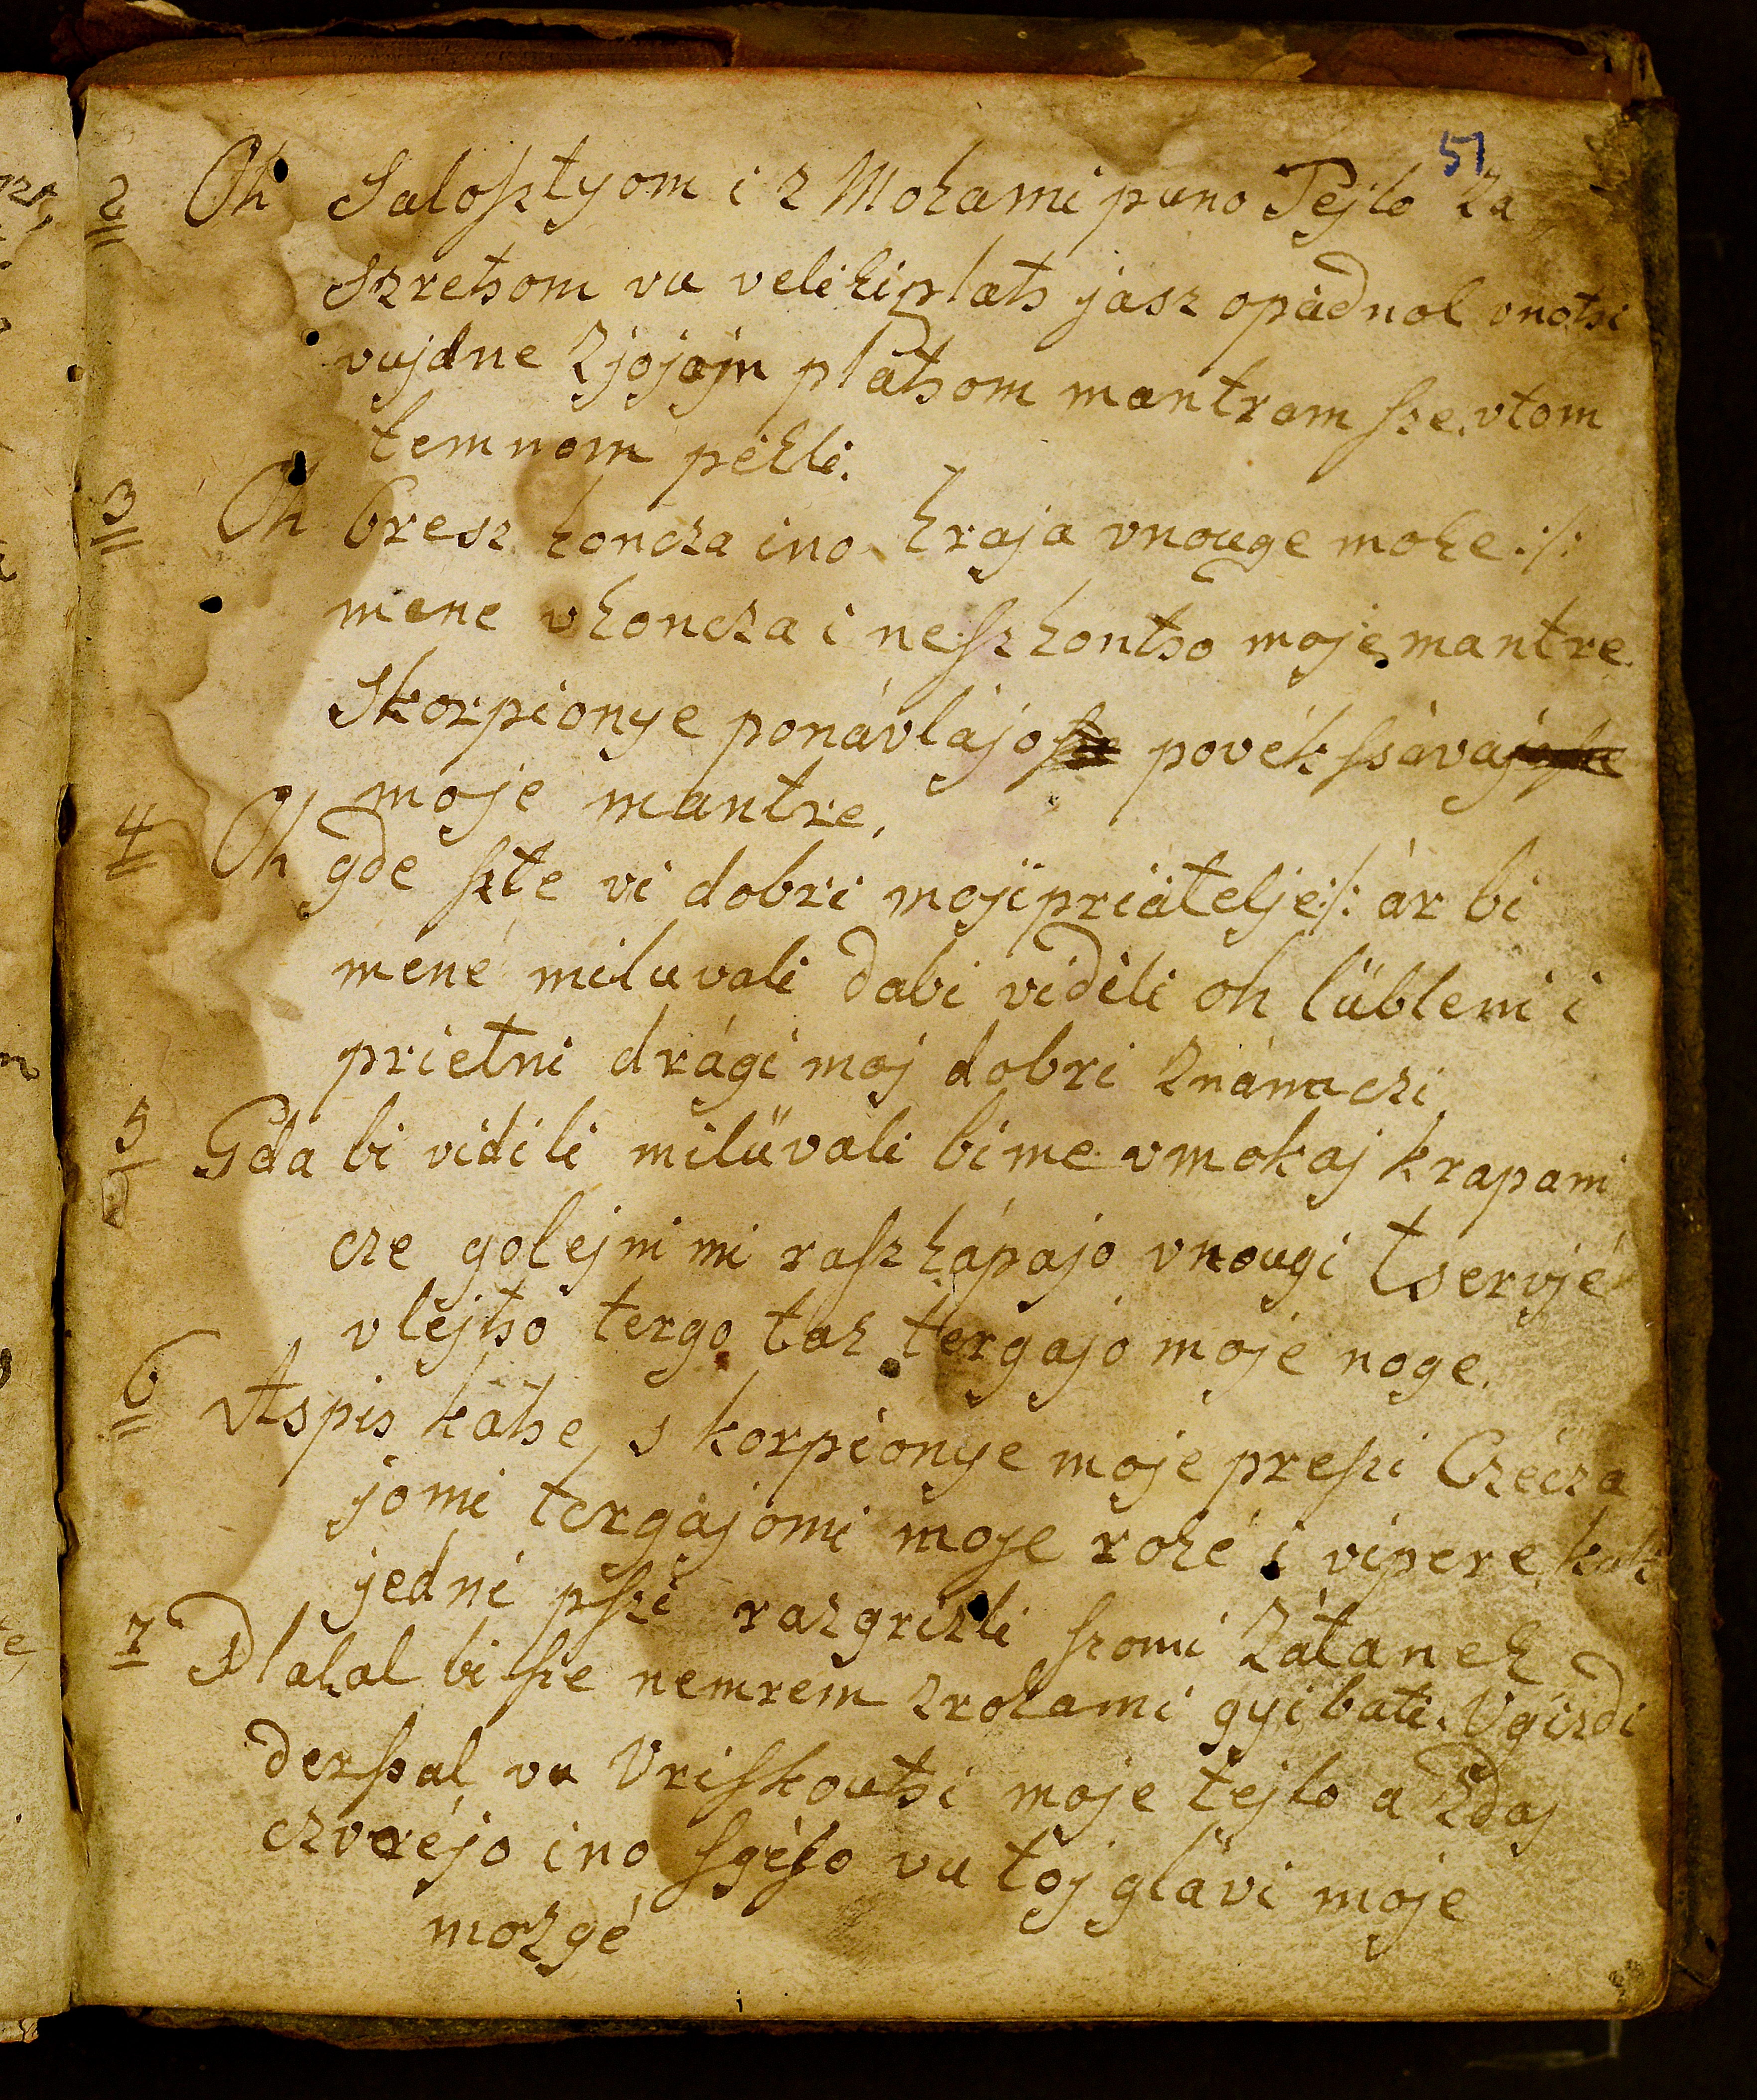 51
2 Oh Saloſztyom i z Mokami puno Tejlo Za
szretsom vu veliki plats jasz opádnol vnotsi
vujdne Zjojojn plátsom mantram ſze vtom
temnom pékli.
3 Oh bresz koncza ino kraja vnouge moke ./.
mene vkoncza i neſzkontso moje mantre
Skorpionye ponávlajo povékſsáva
moje mantre.
4 Oh gde ſzte vi dobri moji priátelje ./. ár bi
mené miluvali dabi vidili oh lübleni i
prietni drági moj dobri Známczi
5 Gda bi vidili milüvali bi me vmokaj krapami
cze golejni mi raſzkápajo vnougi tservjé
vlejtso tergo tak tergajo moje noge.
6 Aspis katse, skorpionye moje preſzi Czécza
jomi tergájomi moje roké i vipere kak
jedni pſzi razgrizli ſzomi Zátanek
7 Plakal bi ſze nemrem zrokami gyibati. Vgizdi
derſsal vu Vriſkoutsi moje tejlo a Zdaj
czvréjo ino ſgéſo vu toj glávi moje
mozgé